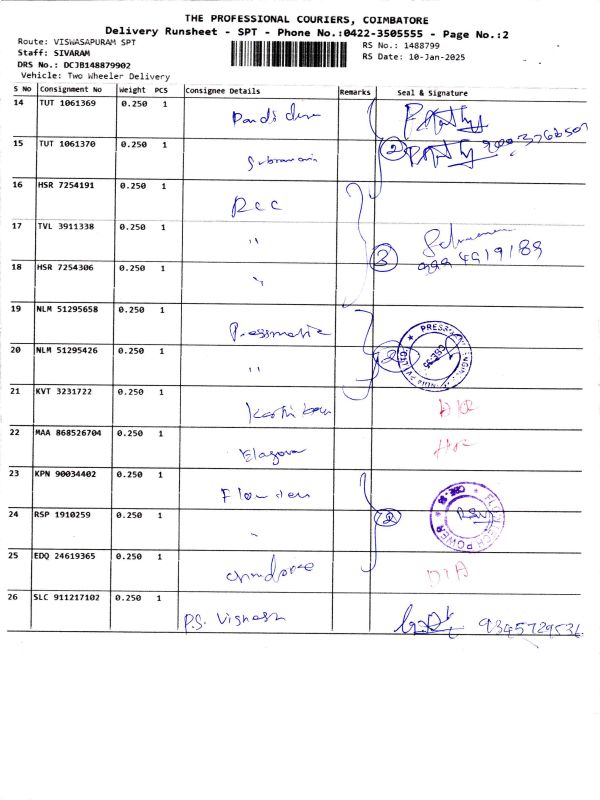 THE PROFESSIONAL COURIERS, COIMBATORE
Delivery Runsheet - SPT - Phone No.:0422-3505555 - Page No.:2
Route: VISWASAPURAM SPT
RS No.: 1488799
Staff: SIVARAM
RS Date: 10-Jan-2025
DRS No.: DCJB148879902
Vehicle: Two Wheeler Delivery
S No Consignment No Weight PCS Consignee Details Remarks Seal & Signature
14 TUT 1061369 0.250 1
15 TUT 1061370 0.250 1 2
16 HSR 7254191 0.250 1 RCC
17 TVL 3911338 0.250 1 "
18 HSR 7254306 0.250 1 " 3 999 4919189
19 NLM 51295658 0.250 1 Pressmatic
20 NLM 51295426 0.250 1 " 2
21 KVT 3231722 0.250 1
22 MAA 868526704 0.250 1
23 KPN 90034402 0.250 1
24 RSP 1910259 0.250 1 " 2 POWER
25 EDQ 24619365 0.250 1
26 SLC 911217102 0.250 1 P.S. Vignesh 9345729534